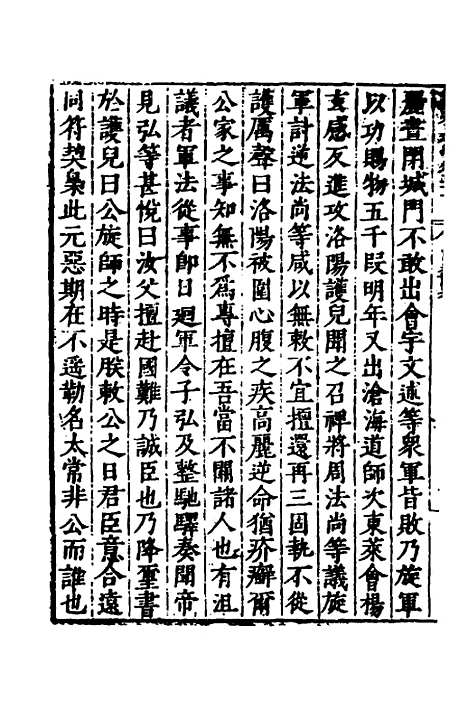 晝閉城門不敢出會宇文述等衆軍皆敗乃旋軍
以功賜物五千段明年又出滄海道師次東萊會楊
玄感反進攻洛陽護兒聞之召裨將周法尚等議旋
軍討逆法尚等咸以無敕不宜擅還再三固執不從
護厲聲曰洛陽被圍心腹之疾高麗逆命猶疥癬爾
公家之事知無不爲專擅在吾當不關諸人也有沮
議者軍法從事即日廻軍令子弘及整馳驛奏聞帝
見弘等甚悅曰汝父擅赴國難乃誠臣也乃降璽書
於護兒曰公旋師之時是朕敕公之日君臣意合遠
同符契梟此元惡期在不遥勒名太常非公而誰也